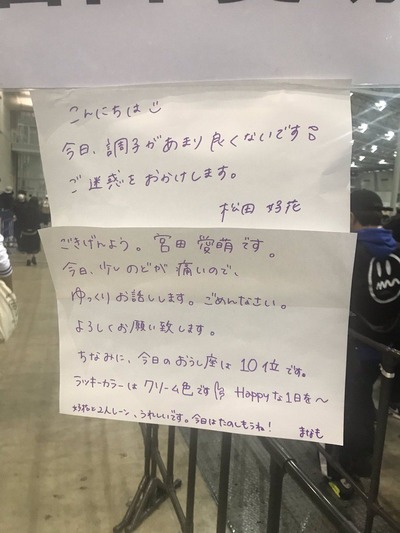 こんにちは
今日、調子があまり良くないです
ご迷惑をおかけします。
松田 好花
ごきげんよう。宮田 愛萌です。
今日、少しのどが痛いので、
ゆっくりお話しします。ごめんなさい。
よろしくお願い致します。
ちなみに、今日のおうし座は10位です。
ラッキーカラーはクリーム色です Happyな1日を〜
好花と2人レーン、うれしいです。今日はたのしもうね! まなも